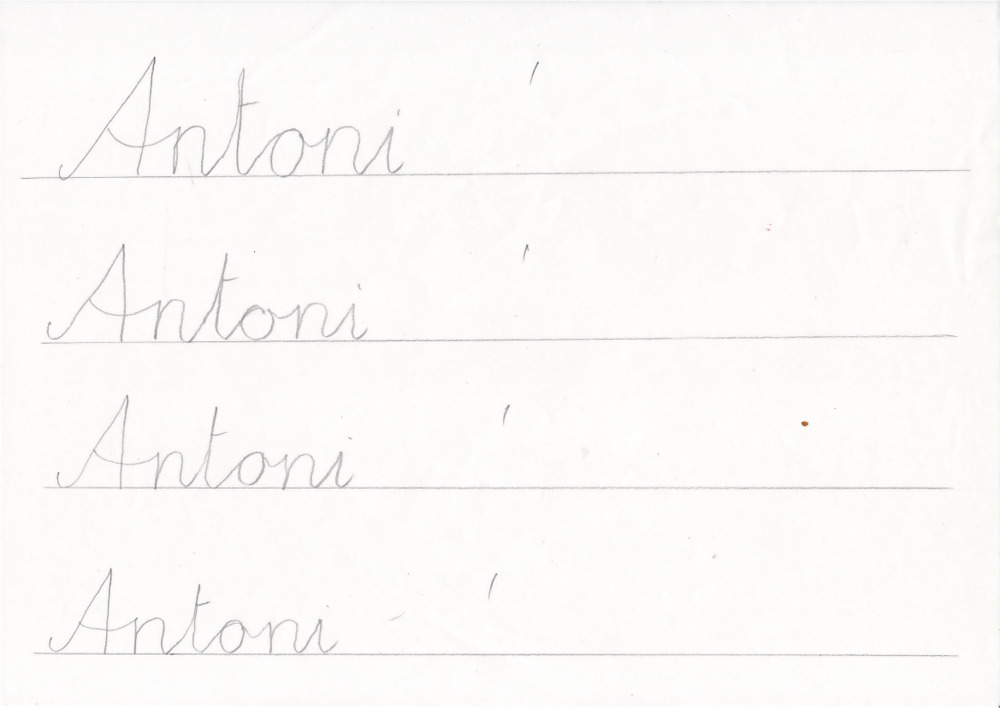 Antoni
Antoni
Antoni
Antoni